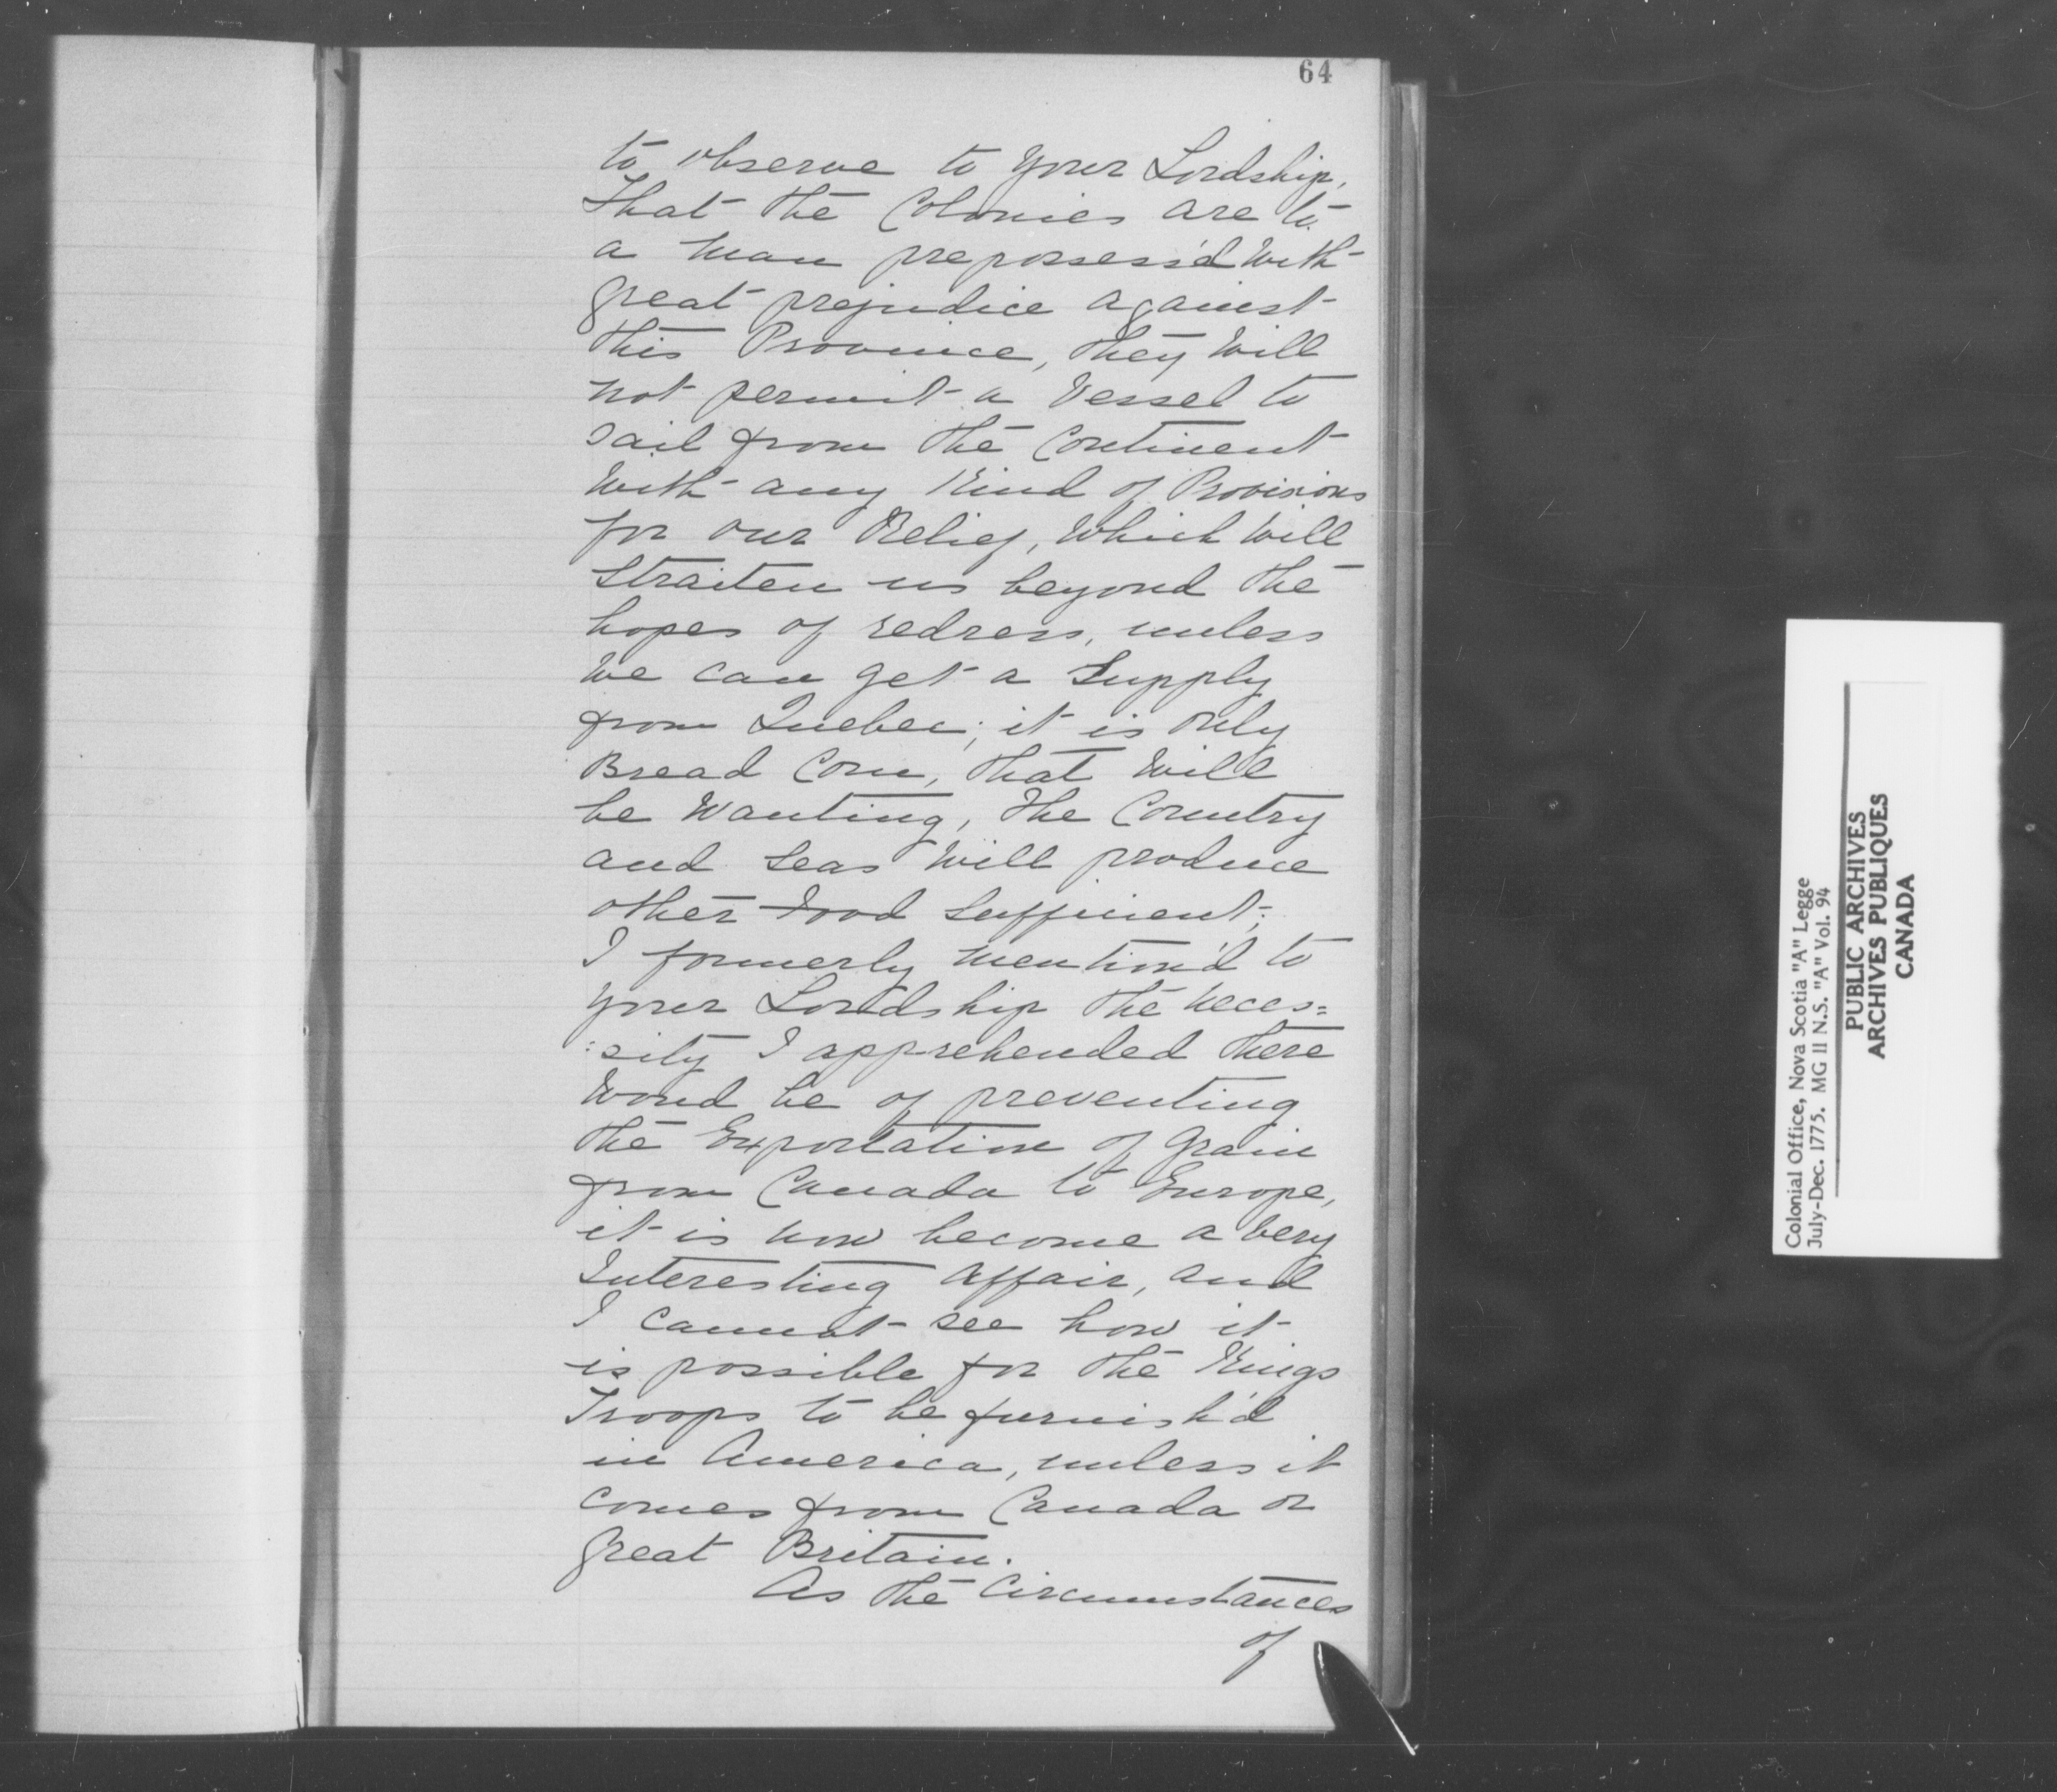 64
to observe to your Lordship,
That the Colonies are to
a Man prepossess'd With
great prejudice against
this Province, they Will
not permit a Vessel to
sail from the Continent
With any Kind of Provisions
for our Relief, Which Will
straiten us beyond the
hopes of redress, unless
We can get a Supply
from Quebec; it is only
Bread Corn, that Will
be Wanting, the Country
and Seas Will produce
other Food Sufficient;
I formerly mention'd to
your Lordship the neces=
:sity I apprehended there
Woud be of preventing
the Exportation of Grain
from Canada to Europe,
it is now become a very
Interesting Affair, and
I cannot see how it
is possible for the Kings
Troops to be furnish'd
in America, unless it
comes from Canada or
Great Britain.
As the Circumstances
of
Colonial Office, Nova Scotia "A" Legge
July-Dec. 1775. MG 11 N.S. "A" Vol. 94
PUBLIC ARCHIVES
ARCHIVES PUBLIQUES
CANADA